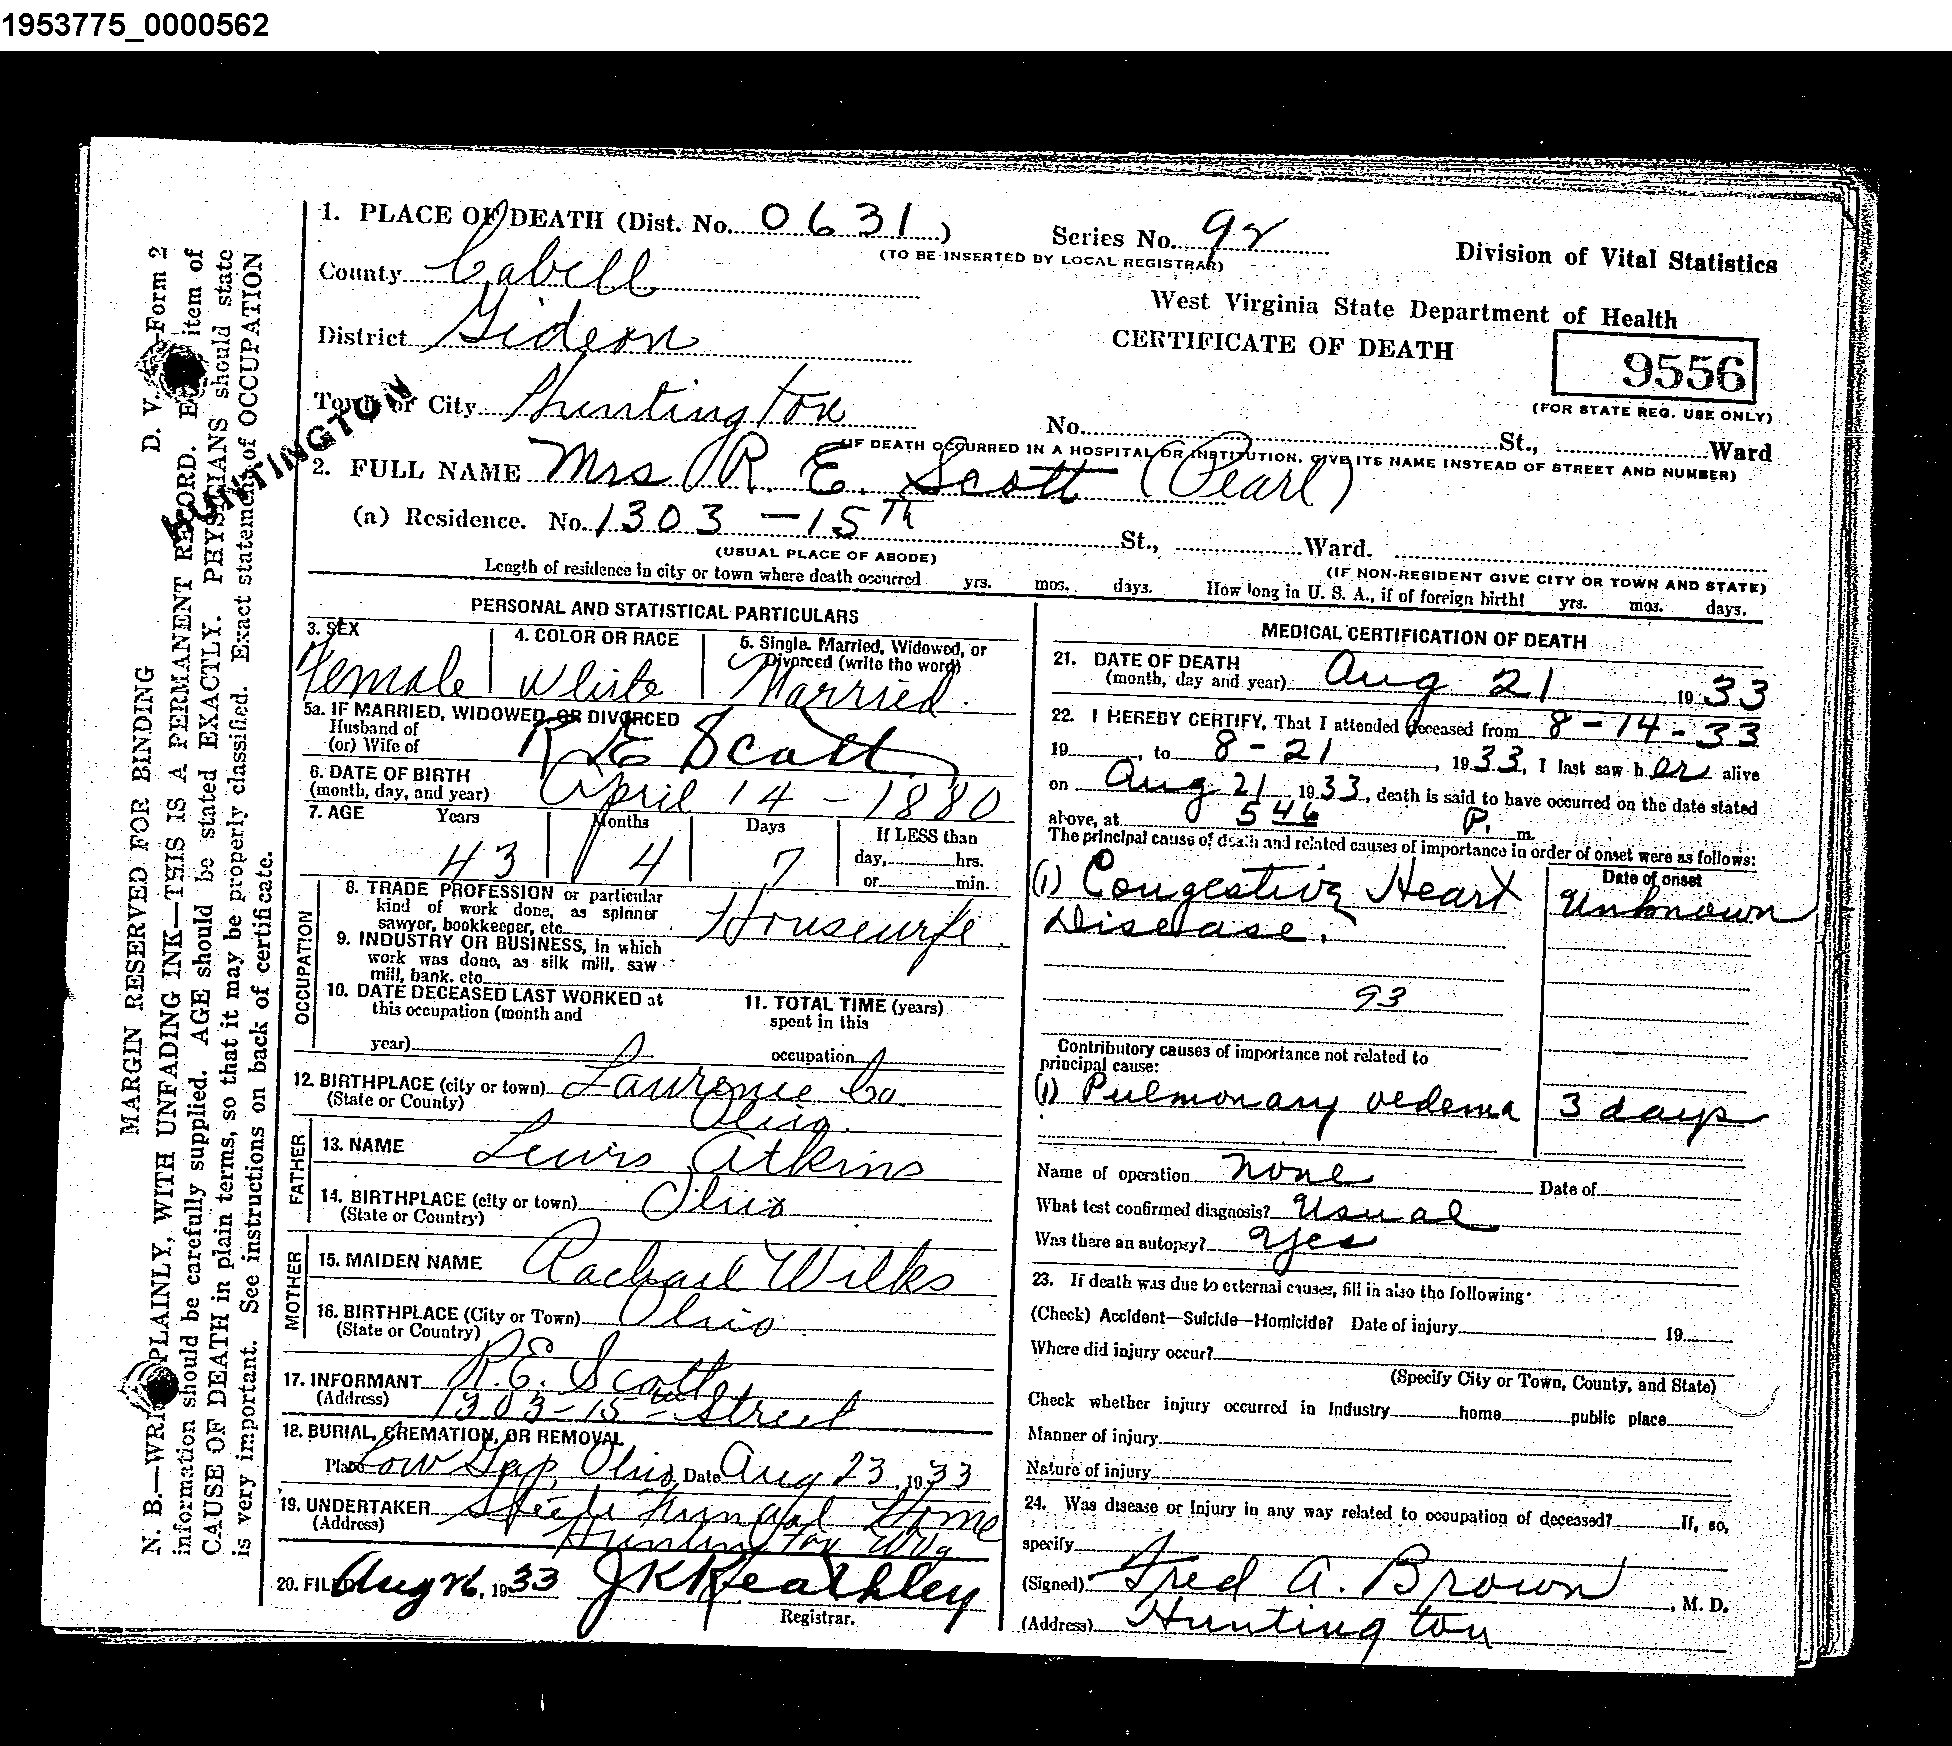 1953775_0000562
1. PLACE OF DEATH (Dist. No. 0631)
Series No. 92
(TO BE INSERTED BY LOCAL REGISTRAR)
Division of Vital Statistics
County Cabell
West Virginia State Department of Health
District Gideon
CERTIFICATE OF DEATH
9556
(FOR STATE REG. USE ONLY)
Town or City Huntington
No. St., Ward
(IF DEATH OCCURRED IN A HOSPITAL OR INSTITUTION, GIVE ITS NAME INSTEAD OF STREET AND NUMBER)
HUNTINGTON
2. FULL NAME Mrs R. E. Scott (Pearl)
(a) Residence. No. 1303 - 15th St., Ward.
(USUAL PLACE OF ABODE)
(IF NON-RESIDENT GIVE CITY OR TOWN AND STATE)
Length of residence in city or town where death occurred yrs. mos. days. How long in U. S. A., if of foreign birth? yrs. mos. days.
PERSONAL AND STATISTICAL PARTICULARS
3. SEX
4. COLOR OR RACE
5. Single, Married, Widowed, or
Divorced (write the word)
Female White Married.
5a. IF MARRIED, WIDOWED, OR DIVORCED
Husband of
(or) Wife of R E Scott
6. DATE OF BIRTH
(month, day, and year) April 14 - 1880
7. AGE Years Months Days If LESS than
43 4 7 day, hrs.
or min.
OCCUPATION
8. TRADE PROFESSION or particular
kind of work done, as spinner
sawyer, bookkeeper, etc. Housewife.
9. INDUSTRY OR BUSINESS, in which
work was done, as silk mill, saw
mill, bank, etc.
10. DATE DECEASED LAST WORKED at
this occupation (month and
year)
11. TOTAL TIME (years)
spent in this
occupation
12. BIRTHPLACE (city or town) Lawrence Co.
(State or County) Ohio.
FATHER
13. NAME Lewis Atkins
14. BIRTHPLACE (city or town) Ohio
(State or Country)
MOTHER
15. MAIDEN NAME Rachael Wilks
16. BIRTHPLACE (City or Town) Ohio
(State or Country)
17. INFORMANT R.E. Scott
(Address) 1303 - 15th Street
18. BURIAL, CREMATION, OR REMOVAL
Place Low Gap, Ohio, Date Aug 23, 1933
19. UNDERTAKER Steele Funeral Home
(Address) Huntington WVa
20. FILED Aug 26, 1933 J K Keathley
Registrar.
MEDICAL CERTIFICATION OF DEATH
21. DATE OF DEATH
(month, day and year) Aug 21 1933
22. I HEREBY CERTIFY, That I attended deceased from 8-14-33
19 , to 8-21 , 1933, I last saw her alive
on Aug 21 1933, death is said to have occurred on the date stated
above, at 546 P. m.
The principal cause of death and related causes of importance in order of onset were as follows:
Date of onset
(1) Congestive Heart Unknown
Disease.
93
Contributory causes of importance not related to
principal cause:
(1) Pulmonary oedema 3 days
Name of operation none Date of
What test confirmed diagnosis? Usual
Was there an autopsy? Yes
23. If death was due to external causes, fill in also the following:
(Check) Accident—Suicide—Homicide? Date of injury 19
Where did injury occur?
(Specify City or Town, County, and State)
Check whether injury occurred in Industry home public place
Manner of injury
Nature of injury
24. Was disease or Injury in any way related to occupation of deceased? If, so,
specify
(Signed) Fred A. Brown, M. D.
(Address) Huntington
D. V. Form 2
MARGIN RESERVED FOR BINDING
N. B.—WRITE PLAINLY, WITH UNFADING INK—THIS IS A PERMANENT RECORD. item of
information should be carefully supplied. AGE should be stated EXACTLY. PHYSICIANS should state
CAUSE OF DEATH in plain terms, so that it may be properly classified. Exact statement of OCCUPATION
is very important. See instructions on back of certificate.